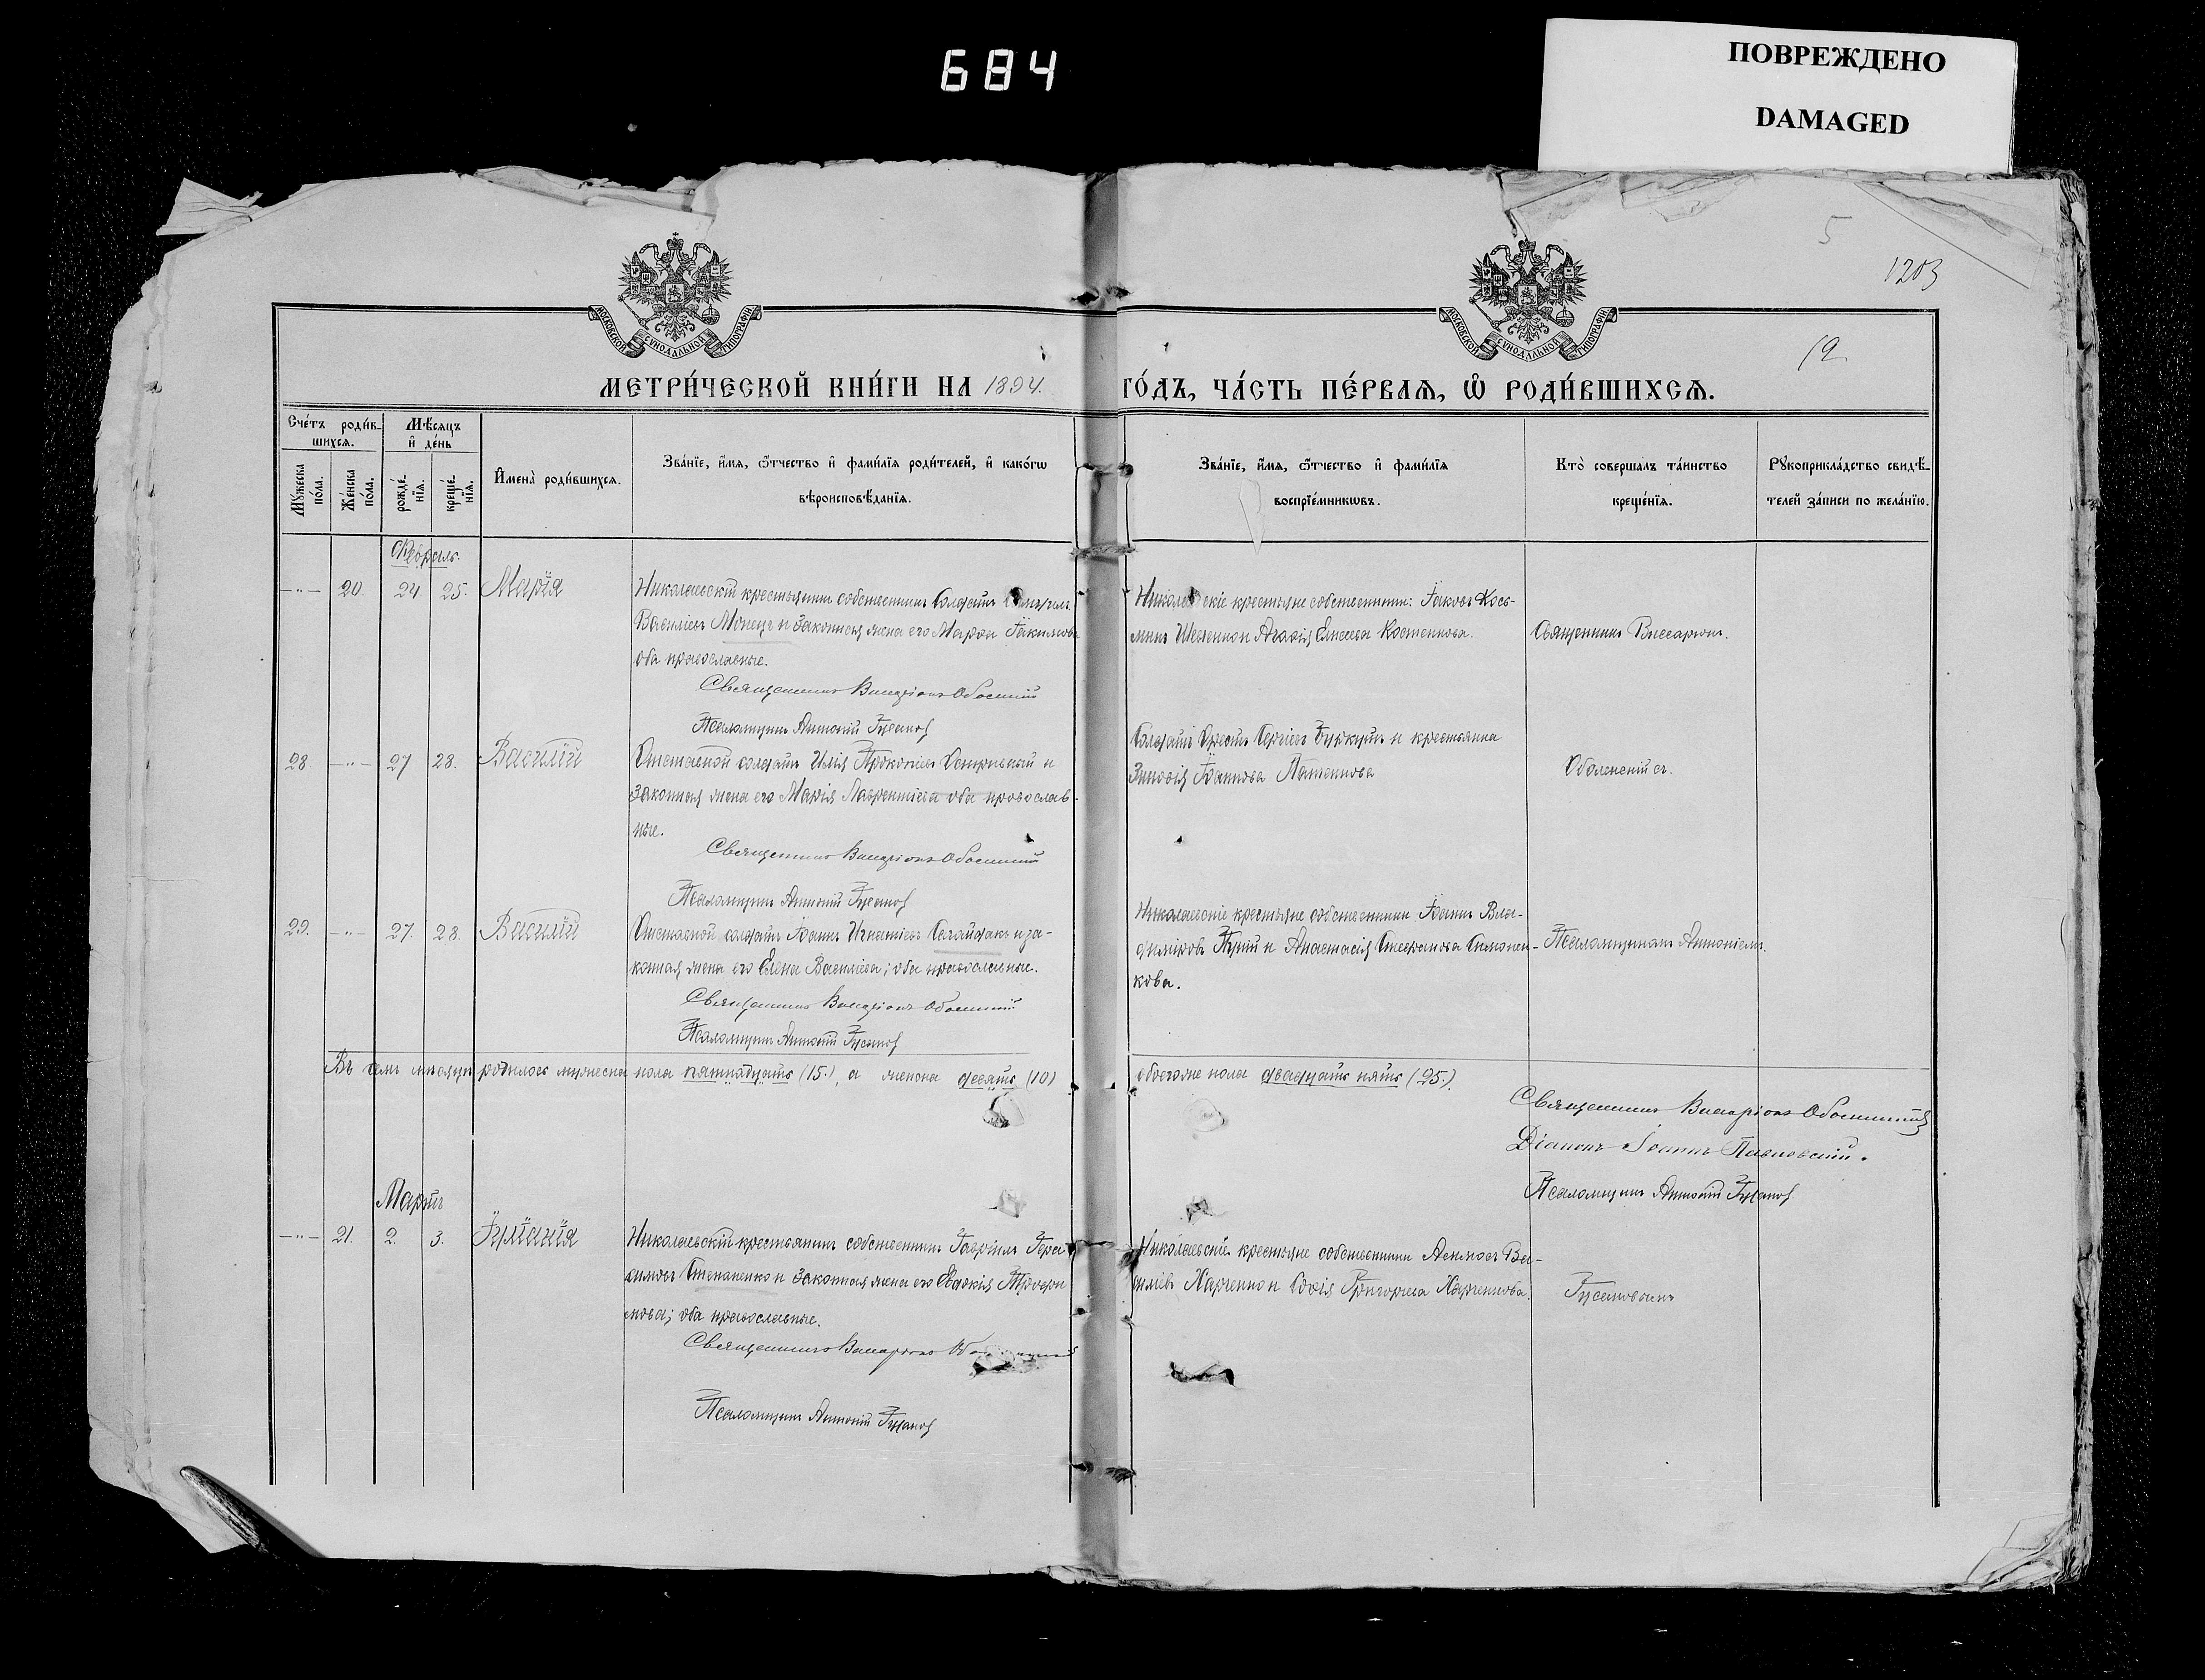 684
ПОВРЕЖДЕНО
DAMAGED
5
1203
12
МОСКОВСКОЙ СѴНОДАЛЬНОЙ ТИПОГРАФІИ
МОСКОВСКОЙ СѴНОДАЛЬНОЙ ТИПОГРАФІИ
МЕТРИ́ЧЕСКОЙ КНИ́ГИ НА 1894. ГО́ДЪ, ЧА́СТЬ ПЕ́РВАѦ, Ѽ РОДИ́ВШИХСѦ.
Сче́тъ роди́в-
шихсѧ.
Мѣ́сѧцъ
и҆ де́нь
Мꙋ́жеска
по́ла.
Же́нска
по́ла.
рожде́-
нїѧ.
креще́-
нїѧ.
И҆мена̀ роди́вшихсѧ.
Зва́нїе, и҆́мѧ, ѻ҆́тчество и҆ фами́лїѧ роди́телей, и҆ како́гѡ
вѣроисповѣ́данїѧ.
Зва́нїе, и҆́мѧ, ѻ҆́тчество и҆ фами́лїѧ
воспрїе́мникѡвъ.
Кто̀ соверша́лъ та́инство
креще́нїѧ.
Рꙋкоприкла́дство свидѣ́-
телей за́писи по жела́нїю.
Февраль.
-"- 20. 24. 25. Марія
Николаевскій крестьянинъ собственникъ Солдатъ
Василіевъ Монецъ и законная жена его Марѳа Іакимова
оба православные.
Священникъ Виссаріонъ Оболенскій
Псаломщикъ Антоній Гусановъ
Николаевскіе крестьяне собственники: Іаковъ Кось-
минъ Шевченко и Агаѳія Елисеева Костенкова.
Священникъ Виссаріонъ
28 -"- 27 28. Василій
Отставной солдатъ Илія Прокопіевъ Островный и
законная жена его Марія Лаврентіева оба православ-
ные.
Священникъ Виссаріонъ Оболенскій
Псаломщикъ Антоній Гусановъ
Солдатъ Орестъ Сергіевъ и крестьянка
Зиновія Іоаннова Пащенкова
Оболенскій съ
29. -"- 27. 28. Василій
Отставной солдатъ Іоаннъ Игнатіевъ Сагайдакъ и за-
конная жена его Елена Василіева; оба православные.
Священникъ Виссаріонъ Оболенскій
Псаломщикъ Антоній Гусановъ
Николаевскіе крестьяне собственники Іоаннъ Вла-
диміровъ и Анастасія Стефанова Симонен-
кова.
Псаломщикомъ Антоніемъ
Въ семъ мѣсяцѣ родилось мужеска пола пятнадцать (15.), а женска десять (10)
обоего же пола двадцать пять (25.).
Священникъ Виссаріонъ Оболенскій
Діаконъ Іоаннъ Павловскій.
Псаломщикъ Антоній Гусановъ
Мартъ
-"- 21. 2. 3. Іуліанія
Николаевскій крестьянинъ собственникъ Гавріилъ Гера-
симовъ Степаненко и законная жена его Евдокія Трофи-
мова; оба православные.
Священникъ Виссаріонъ
Псаломщикъ Антоній Гусановъ
Николаевскіе крестьяне собственники Ва-
силіевъ Харченко и Софія Григорьева Харченкова.
Гусановымъ